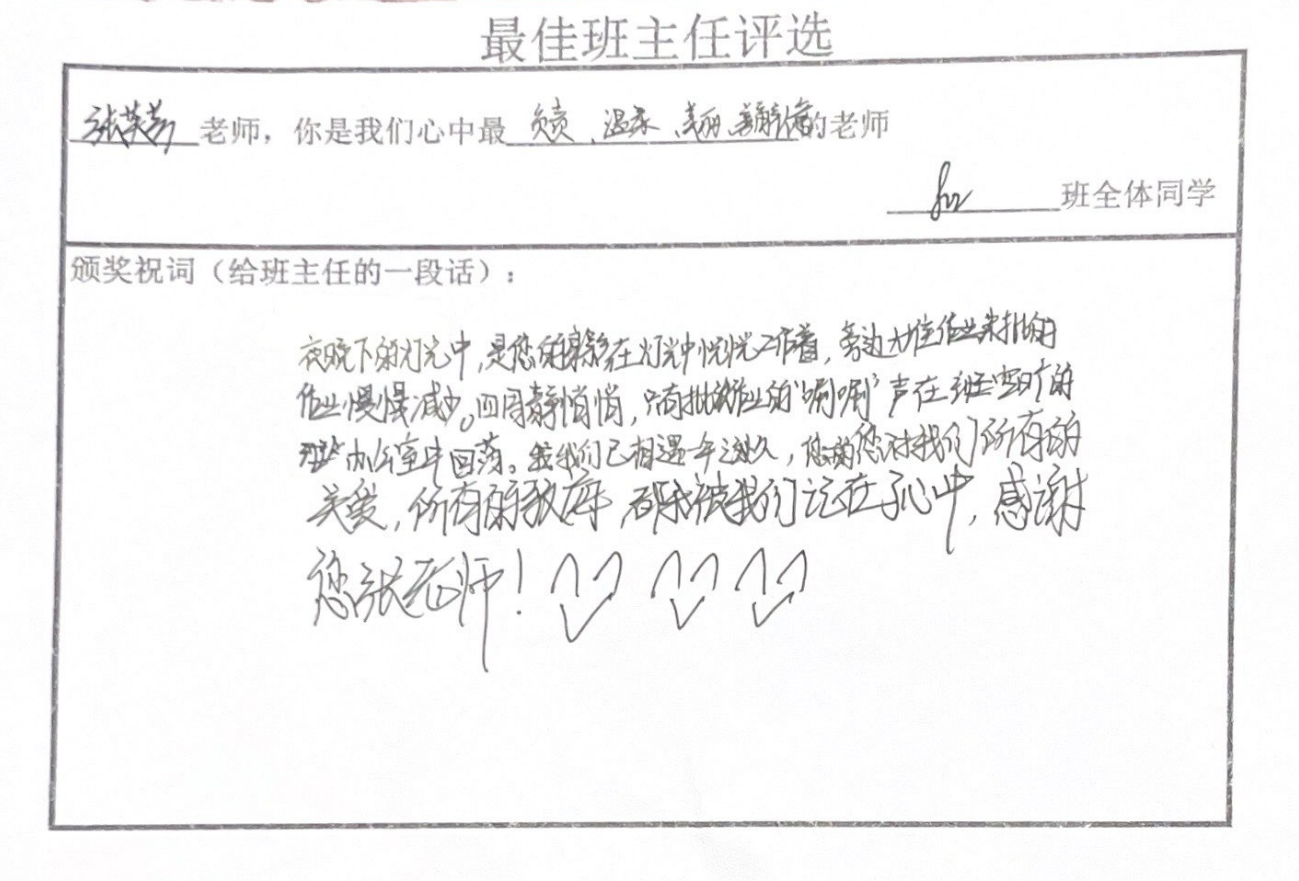 最佳班主任评选
张英英老师，你是我们心中最负责、温柔、美丽、善解人意的老师
班全体同学
颁奖祝词（给班主任的一段话）：
夜晚下的灯光中，是您的身影在灯光中恍恍工作着，旁边大堆作业未批的
作业慢慢减少。四周静悄悄，只有批作业的“唰唰”声在空旷的
办公室中回荡。我们已相遇一年之久，您对我们所有的
关爱，所有的教育，都被我们记在心中，感谢
您张老师！